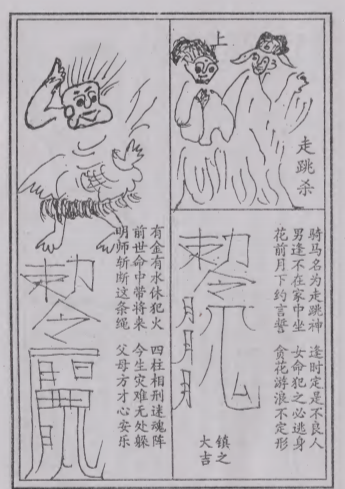 上
走跳杀
骑马名为走跳神 逢时定是不良人
男逢不在家中坐 女命犯之必逃身
花前月下约言誓 贪花游浪不定形
敕令
月月月
镇之大吉
有金有水休犯火 四柱相刑迷魂阵
前世命中带将来 今生灾难无处躲
明师斩断这条绳 父母方才心安乐
敕令